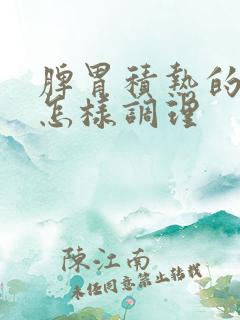 脾胃積熱的
怎樣調理
陳江南
未经同意禁止转载